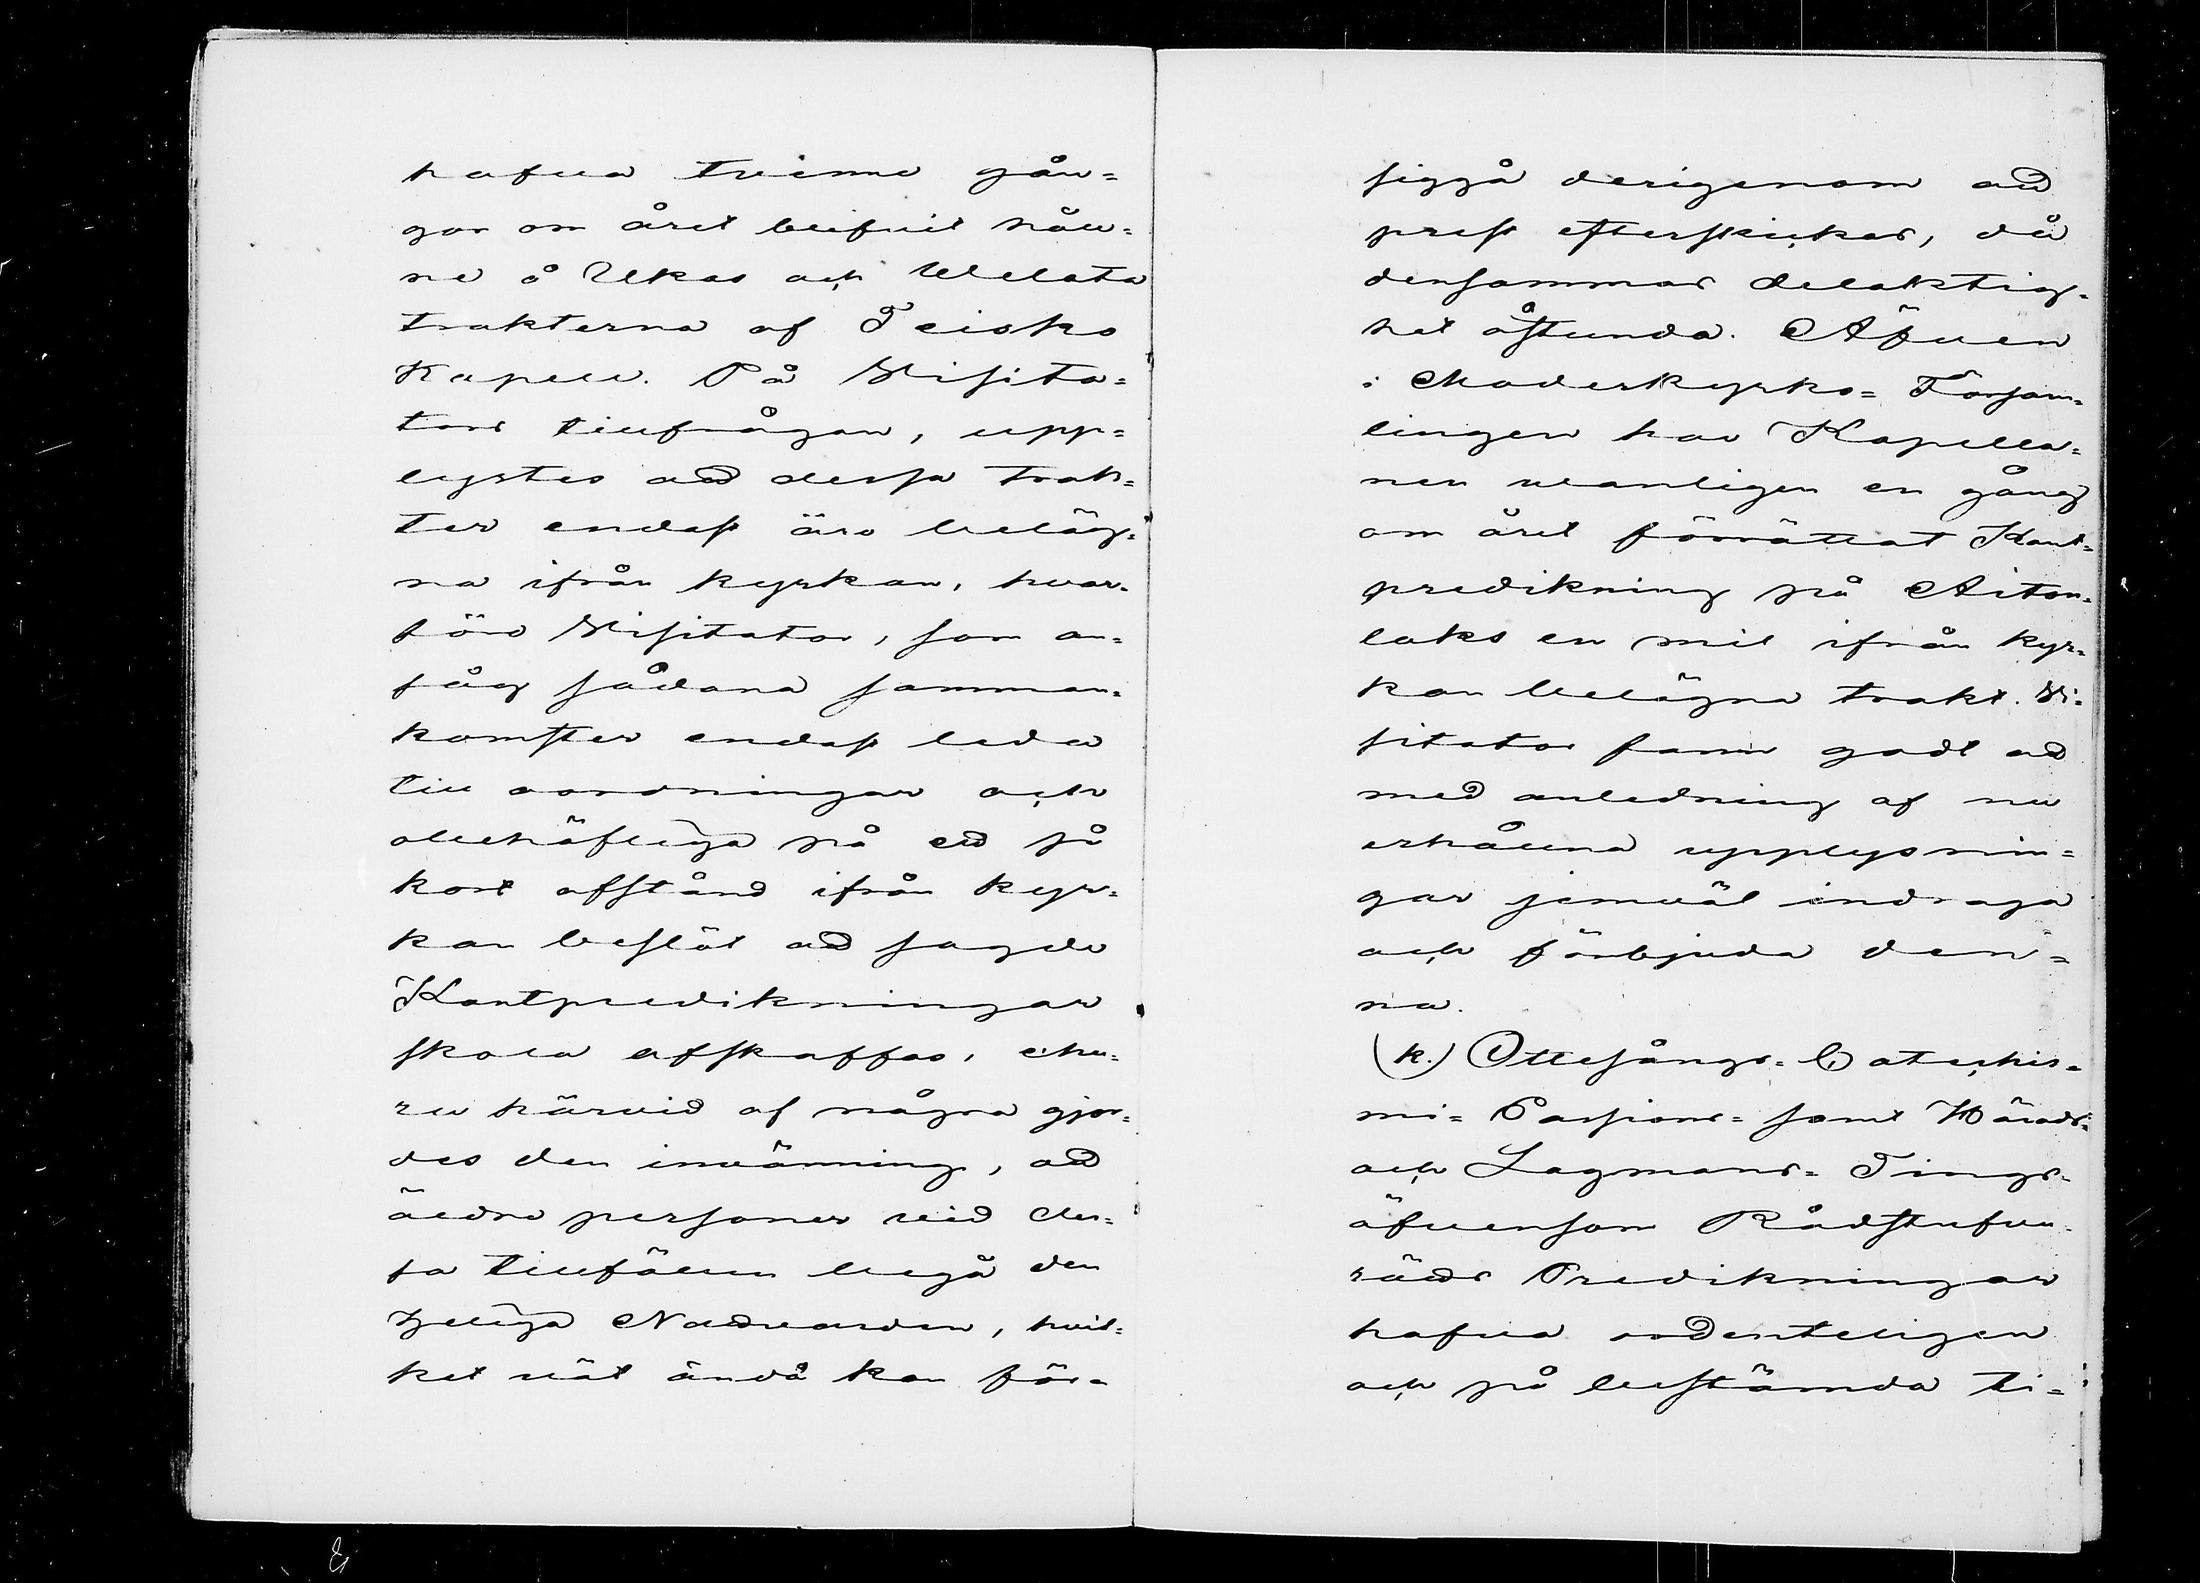 hafva tvänne gån=
gor om året blifvit håll=
ne å Ukas och Welata
trakterna af Teisko
Kapell. På Visita=
tors tillfrågan, upp=
lystes att dessa trak=
ter endast äro beläg=
na ifrån kyrkan, hvar=
före Visitator, som an=
såg sådana samman=
komster endast leda
till oordningar och
obehöfliga på ett så
kort afstånd ifrån kyr=
kan beslöt att sagde
Kantpredikningar
skola afskaffas, ehu=
ru härvid af några gjor=
des den invänning, att
äldre personer vid des=
sa tillfällen begå den
Heliga Nattvarden, hvil=
ket väl ändå kan för=
siggå derigenom att
prest efterskickas, då
densammas delaktig=
het åstunda. Äfven
i Moderkyrko=Församm=
lingen har Kapella=
nen vanligen en gång
om året förrättat Kant=
predikning på Aiton=
laks en mil ifrån kyr=
kan belägna trakt. Vi=
sitator fann godt att
med anledning af nu
erhållna upplysnin=
gar jemväl indraga
och förbjuda den=
na.
(k.) Ottesångs= Catechis=
mi= Passions= samt Härads=
och Lagmans= Tings=
äfvensom Rådstufvu=
rätts Predikningar
hafva ordenteligen
och på bestämda ti=